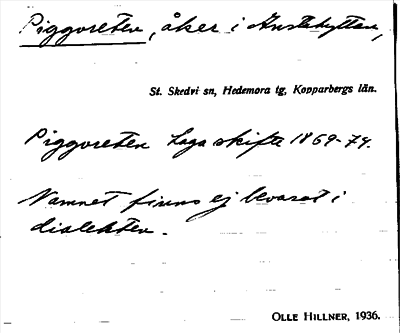 Piggvreten, åker i Anstahyttan,
St. Skedvi sn, Hedemora tg, Kopparbergs län.
Piggvreten Laga skifte 1869-74.
Namnet finns ej bevarat i
dialekten.
OLLE HILLNER, 1936.